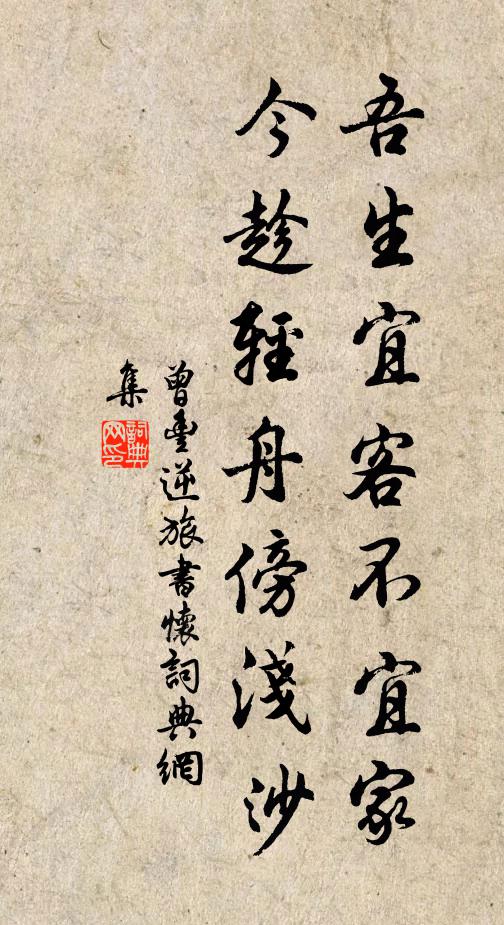 吾生宜客不宜家
今趁輕舟傍淺沙
曾豐逆旅書懷詞典網
集
詞典网印